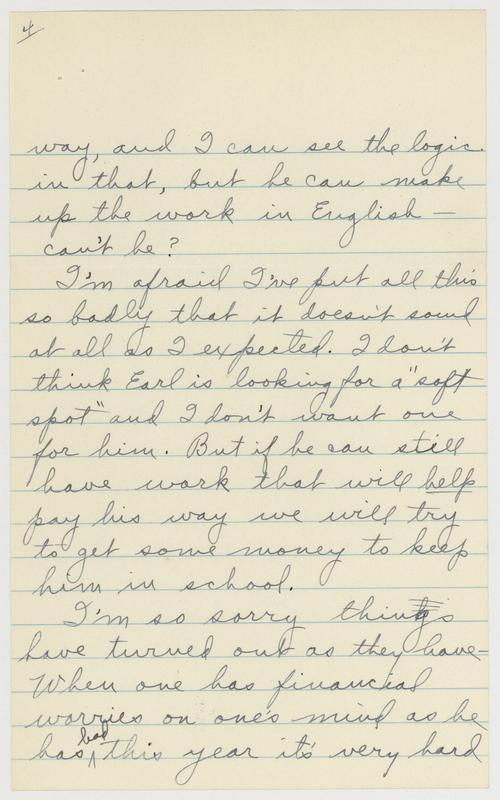 4
way, and I can see the logic
in that, but he can make
up the work in English —
can't he?
I'm afraid I've put all this
so badly that it doesn't sound
at all as I expected. I don't
think Earl is looking for a "soft
spot" and I don't want one
for him. But if he can still
have work that will help
pay his way we will try
to get some money to keep
him in school.
I'm so sorry things
have turned out as they have—
When one has financial
worries on one's mind as he
has had this year it's very hard